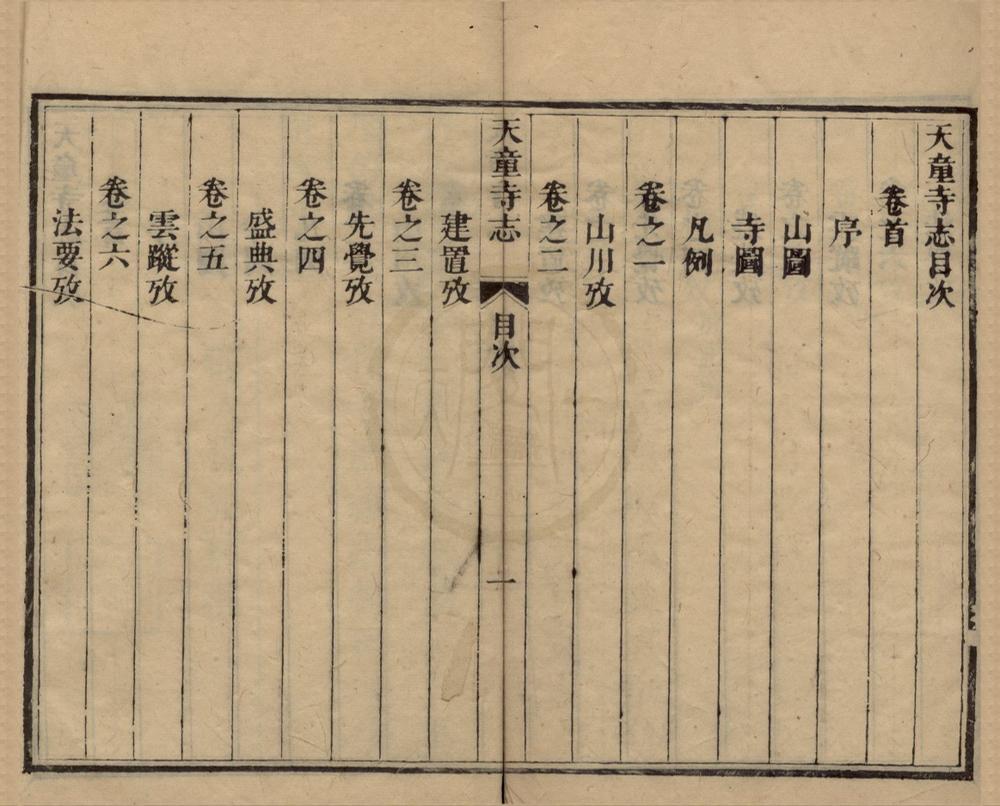 天童寺志目次
卷首
序
山圖
寺圖
凡例
卷之一
山川攷
卷之二
天童寺志 目次 一
建置攷
卷之三
先覺攷
卷之四
盛典攷
卷之五
雲蹤攷
卷之六
法要攷